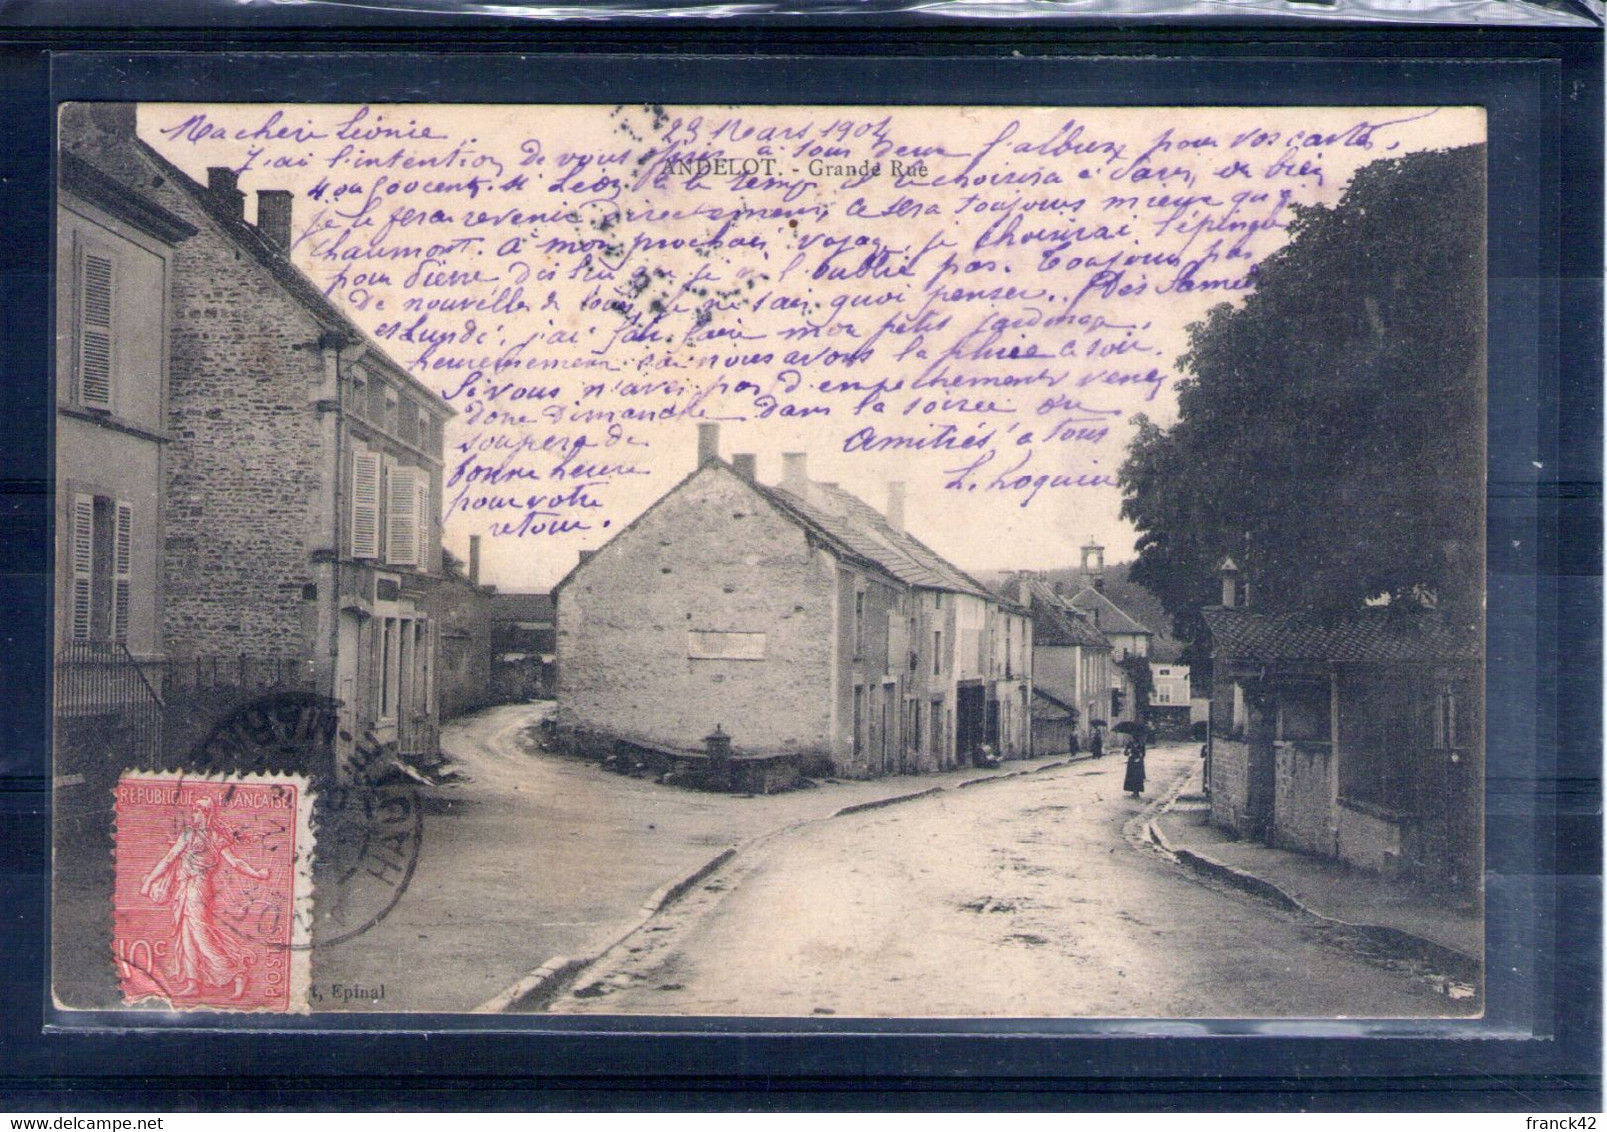 Ma chère Léonie 23 Mars 1904
J'ai l'intention de vous à tous deux l'album pour vos cartes,
4 ou 500 cent. Si Léon a le temps il le choisira à Paris, ou bien
je le ferai revenir directement, ce sera toujours mieux qu'à
Chaumont. A mon prochain voyage, je choisirai l'épingle
pour Pierre dis lui que je ne l'oublie pas. Toujours pas
de nouvelles de Louis, je ne sais quoi penser. Dès Samedi
et Lundi, j'ai fait faire mon petit jardinage,
heureusement car nous avons la pluie ce soir.
Si vous n'avez pas d'empêchements venez
donc Dimanche dans la soirée ou
soupere de
bonne heure
pour votre
retour.
Amitiés à tous
L. Loquin
ANDELOT. - Grande Rue
REPUBLIQUE FRANÇAISE
10c
POSTES
HAUTE
t, Epinal
franck42